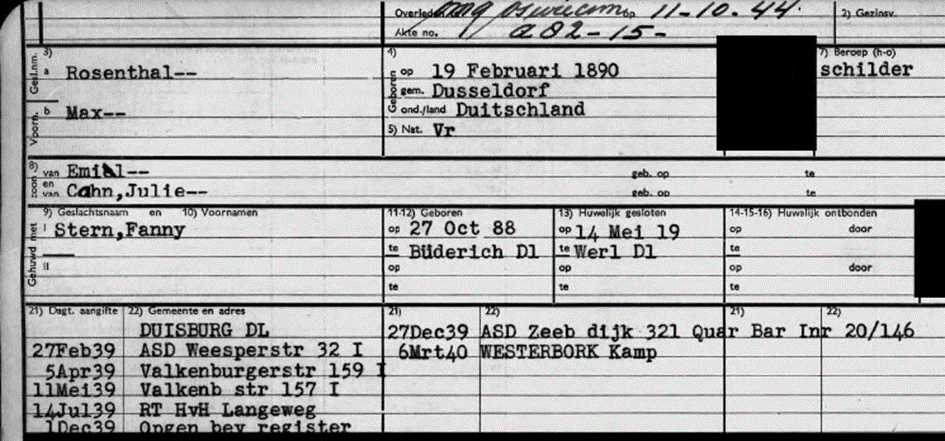 Overleden omg. Oswiecim op 11-10-44. 2) Gezinsv.
Akte no. a 82-15-
3) 4) 7) Beroep (h-o)
Gesl.nm. a Rosenthal-- Geboren op 19 Februari 1890 schilder
gem. Dusseldorf
Voorn. b Max-- ond./land Duitschland
5) Nat. Vr
8) zoon van Emiel-- geb. op te
en van Cahn,Julie-- geb. op te
9) Geslachtsnaam en 10) Voornamen 11-12) Geboren 13) Huwelijk gesloten 14-15-16) Huwelijk ontbonden
Gehuwd met I Stern,Fanny op 27 Oct 88 op 14 Mei 19 op door
te Büderich Dl te Werl Dl te
II op op op door
te te te
21) Dagt. aangifte 22) Gemeente en adres 21) 22) 21) 22)
DUISBURG DL 27Dec39 ASD Zeeb dijk 321 Quar Bar Inr 20/146
27Feb39 ASD Weesperstr 32 I 6Mrt40 WESTERBORK Kamp
5Apr39 Valkenburgerstr 159 I
11Mei39 Valkenb str 157 I
14Jul39 RT HvH Langeweg
1Dec39 Opgen bev register